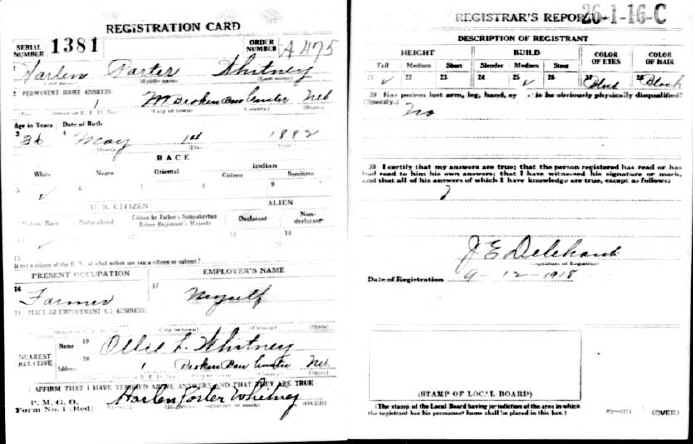 REGISTRATION CARD
SERIAL NUMBER 1381
ORDER NUMBER A475
Harlen Porter Whitney
2 PERMANENT HOME ADDRESS:
Broken Bow Custer Neb
Age in Years
Date of Birth
36 May 1st 1882
RACE
White Negro Oriental Indian
Citizen
U. S. CITIZEN ALIEN
Native Born Naturalized Citizen by Father's Naturalization Before Registrant's Majority Declarant Non-declarant
If not a citizen of the U. S., of what nation are you a citizen or subject?
PRESENT OCCUPATION EMPLOYER'S NAME
16 Farmer 17 Myself
PLACE OF EMPLOYMENT OR BUSINESS:
NEAREST RELATIVE
Name 19 Ollie L. Whitney
Address 20 Broken Bow Custer Neb
I AFFIRM THAT I HAVE VERIFIED ABOVE ANSWERS AND THAT THEY ARE TRUE
P. M. G. O.
Form No. 1 (Red)
Harlen Porter Whitney
(OVER)
REGISTRAR'S REPORT
26-1-16-C
DESCRIPTION OF REGISTRANT
HEIGHT BUILD COLOR OF EYES COLOR OF HAIR
Tall Medium Short Slender Medium Stout
21 22 23 24 25 26 27 Blue 28 Black
29 Has person lost arm, leg, hand, eye, or is he obviously physically disqualified?
(Specify.) No
30 I certify that my answers are true; that the person registered has read or has
had read to him his own answers; that I have witnessed his signature or mark,
and that all of his answers of which I have knowledge are true, except as follows:
J E Delehant
Date of Registration 9-12-1918
(STAMP OF LOCAL BOARD)
(The stamp of the Local Board having jurisdiction of the area in which
the registrant has his permanent home shall be placed in this box.)
(OVER)